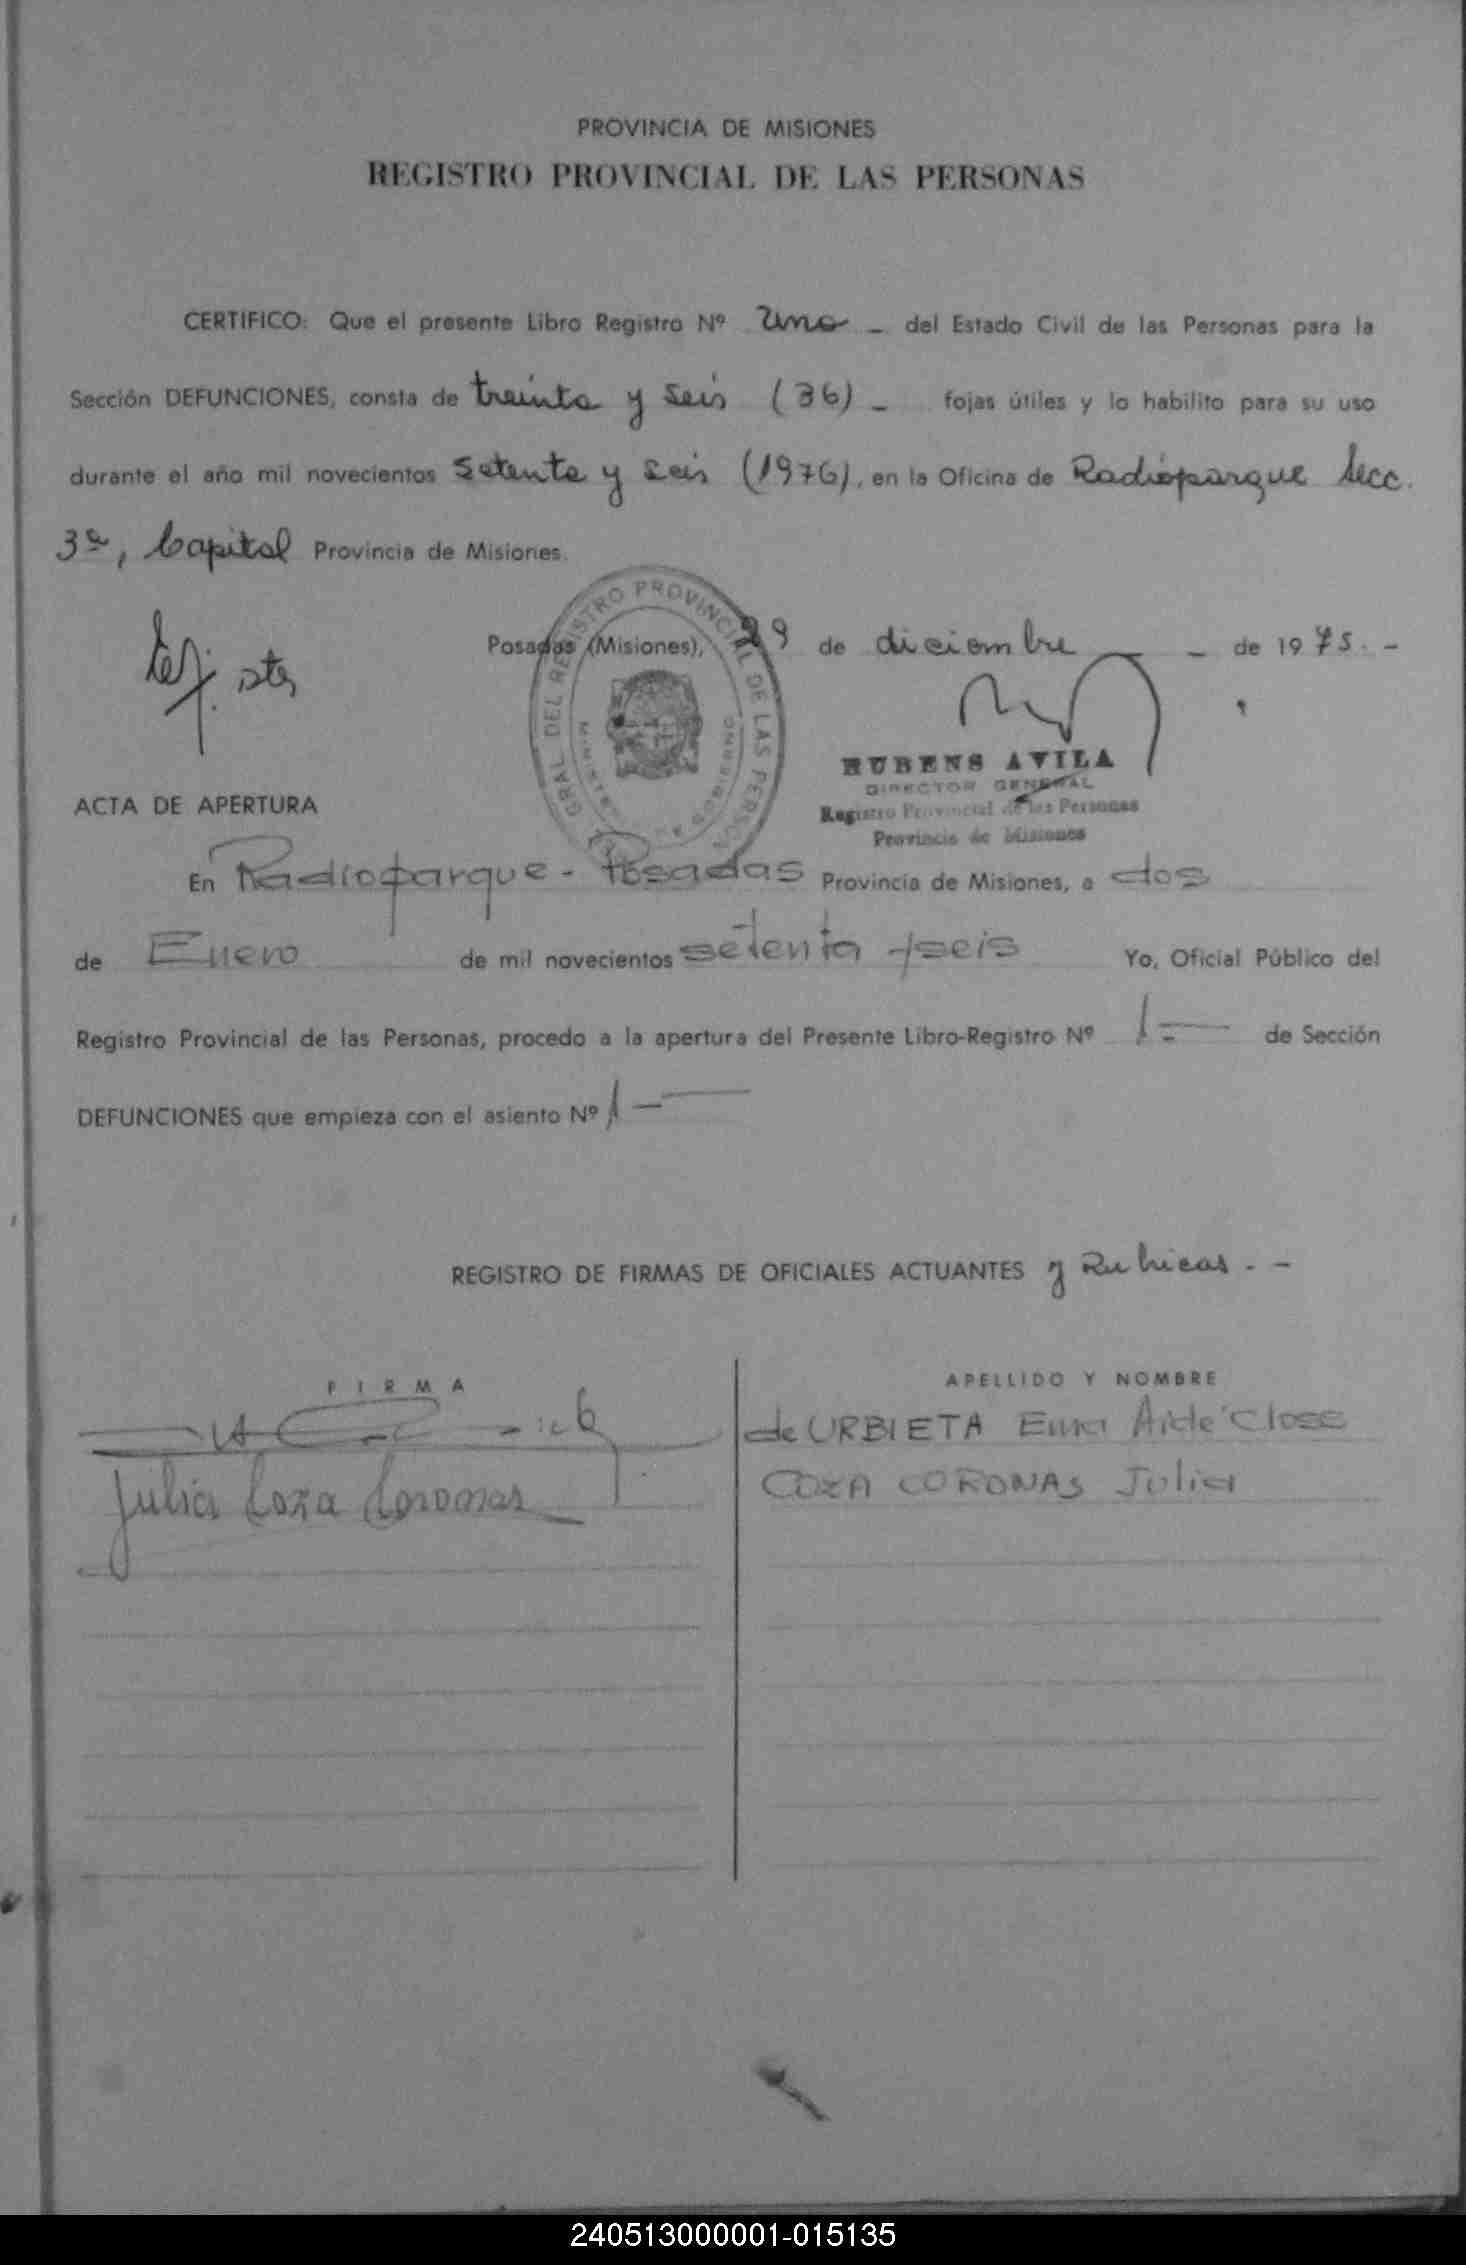 PROVINCIA DE MISIONES
REGISTRO PROVINCIAL DE LAS PERSONAS
CERTIFICO: Que el presente Libro Registro Nº Uno - del Estado Civil de las Personas para la
Sección DEFUNCIONES, consta de treinta y seis (36) - fojas útiles y lo habilito para su uso
durante el año mil novecientos setenta y seis (1976), en la Oficina de Radioparque Secc.
3ª, Capital Provincia de Misiones.
Posadas (Misiones), 29 de diciembre - de 1975. -
GRAL DEL REGISTRO PROVINCIAL DE LAS PERSO
RUBENS AVILA
DIRECTOR GENERAL
Registro Provincial de las Personas
Provincia de Misiones
ACTA DE APERTURA
En Radioparque - Posadas Provincia de Misiones, a dos
de Enero de mil novecientos setenta y seis Yo, Oficial Público del
Registro Provincial de las Personas, procedo a la apertura del Presente Libro-Registro Nº 1 - de Sección
DEFUNCIONES que empieza con el asiento Nº 1 -
REGISTRO DE FIRMAS DE OFICIALES ACTUANTES y Rubricas. -
FIRMA APELLIDO Y NOMBRE
de URBIETA Ema Aide Close
Julia Coza Coronas COZA CORONAS Julia
240513000001-015135